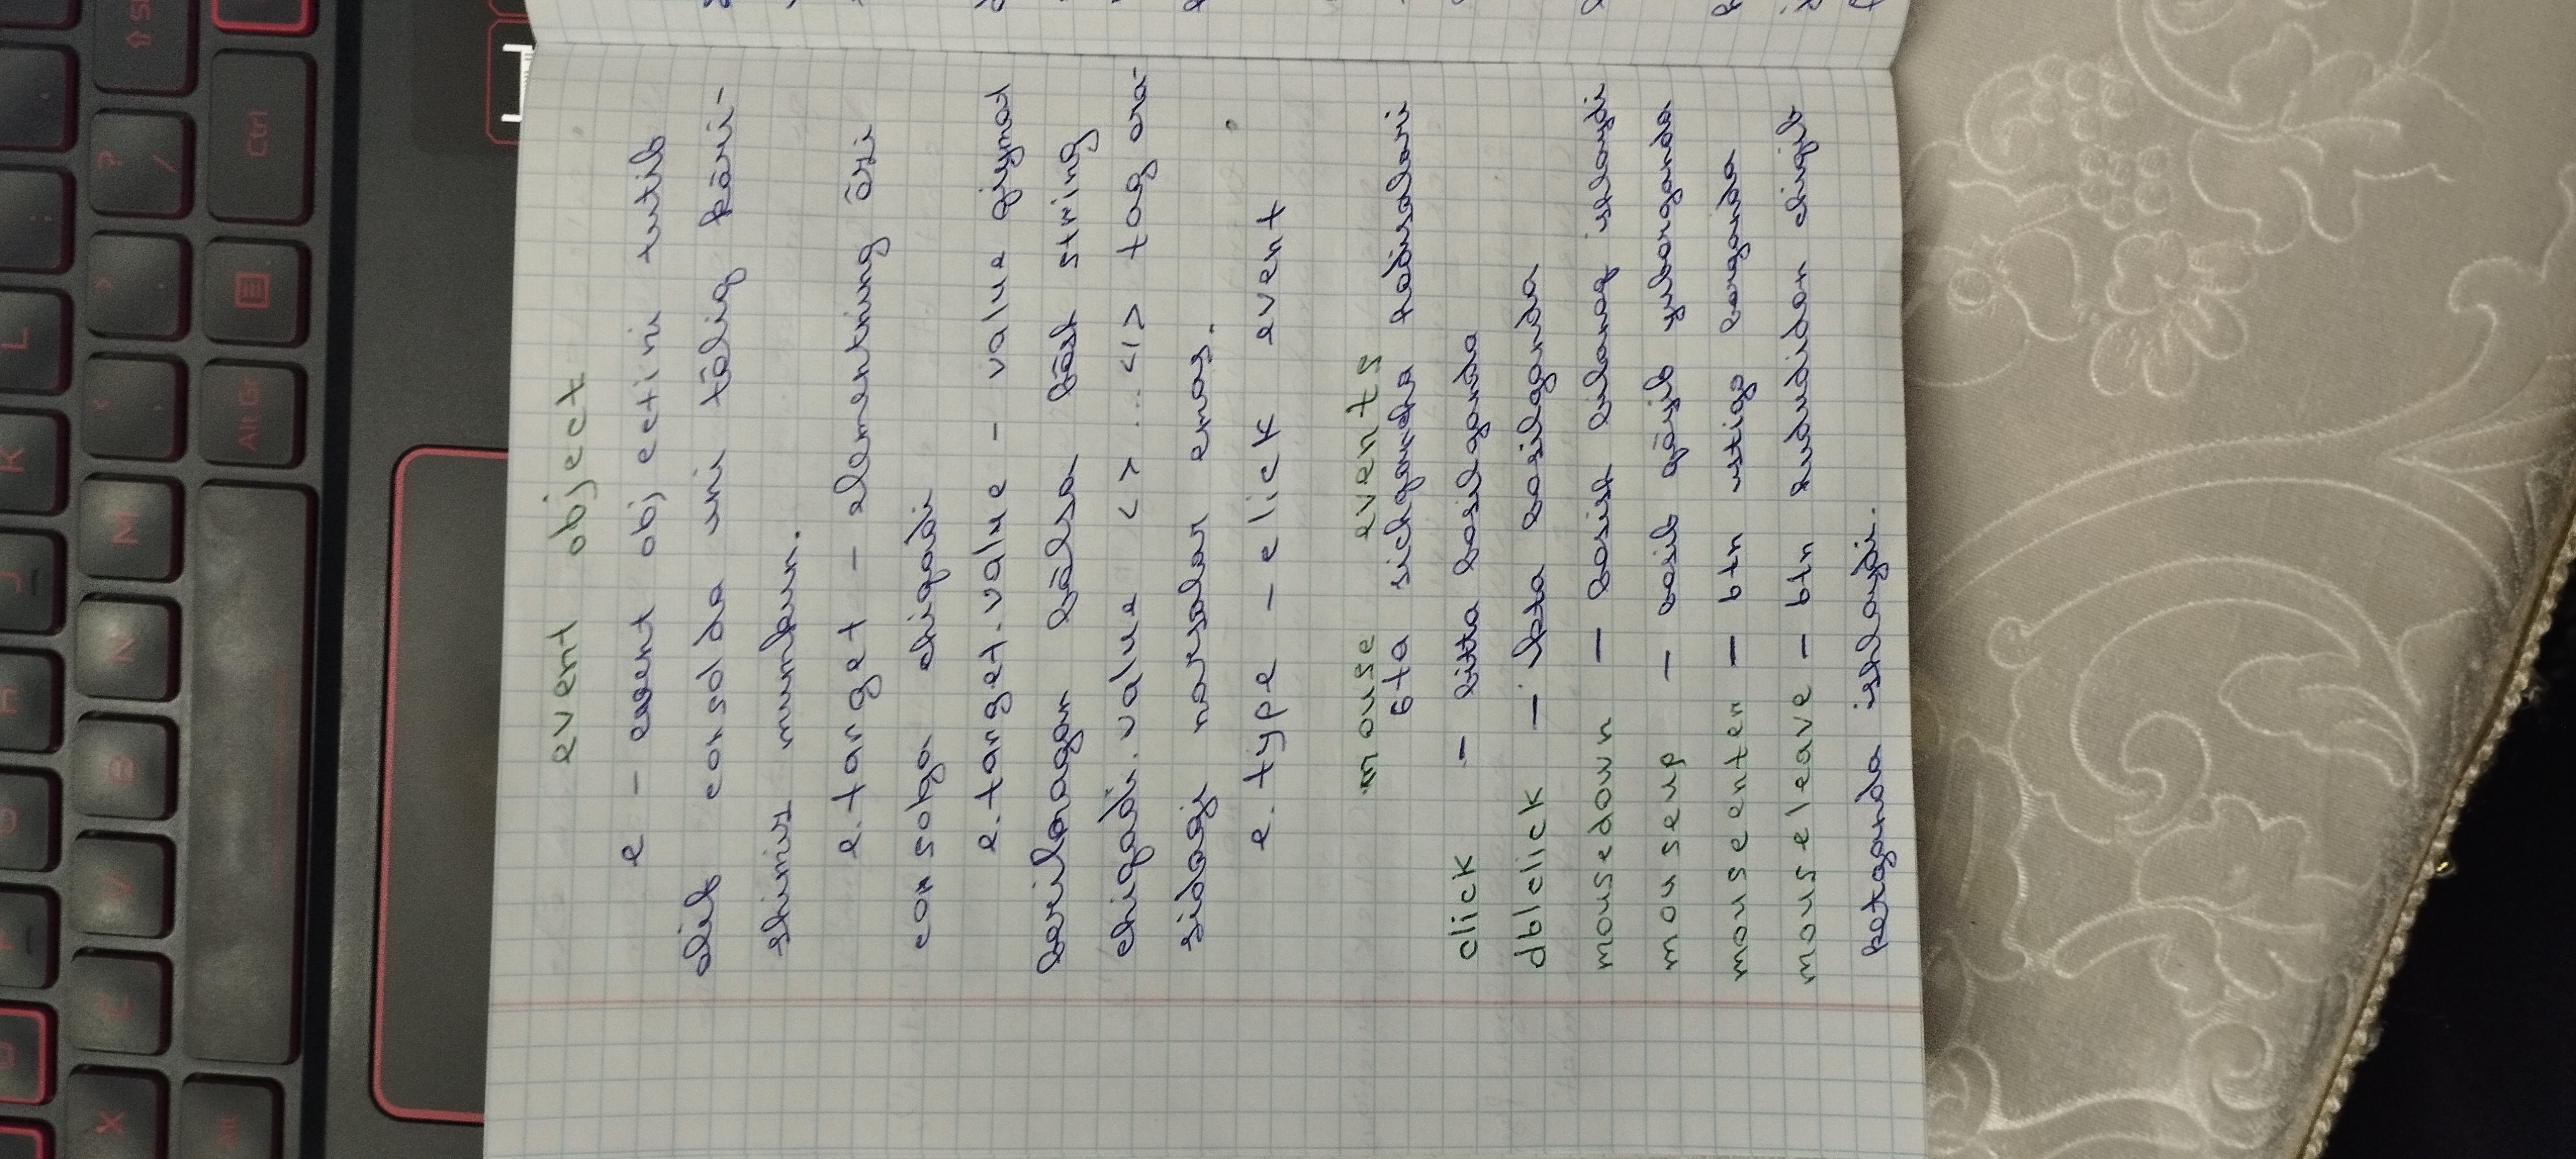 event object
e - event objectini tutib
olib consolda uni tōliq kōri-
shimiz mumkun.
e.target - elementning ōzi
consolga chiqadi
e.target.value - value qiymat
berilmagan bōlsa bōsh string
chiqadi. value < > ... </> tag ora-
sidagi narsalar emas.
e.type - click event
mouse events
6ta sichqoncha hodisalari
click - bitta bosilganda
dblclick - ikki bosilganda
mousedown - bosish bilanoq ishlaydi
mouseup - bosib qōyib yuborganda
mouseenter - btn ustiga borganda
mouseleave - btn hududidan chiqib
ketganda ishlaydi.
Ctrl
Alt Gr
Alt
L
K
J
H
G
F
M
N
B
V
C
X
? /
> .
< ,
: ;